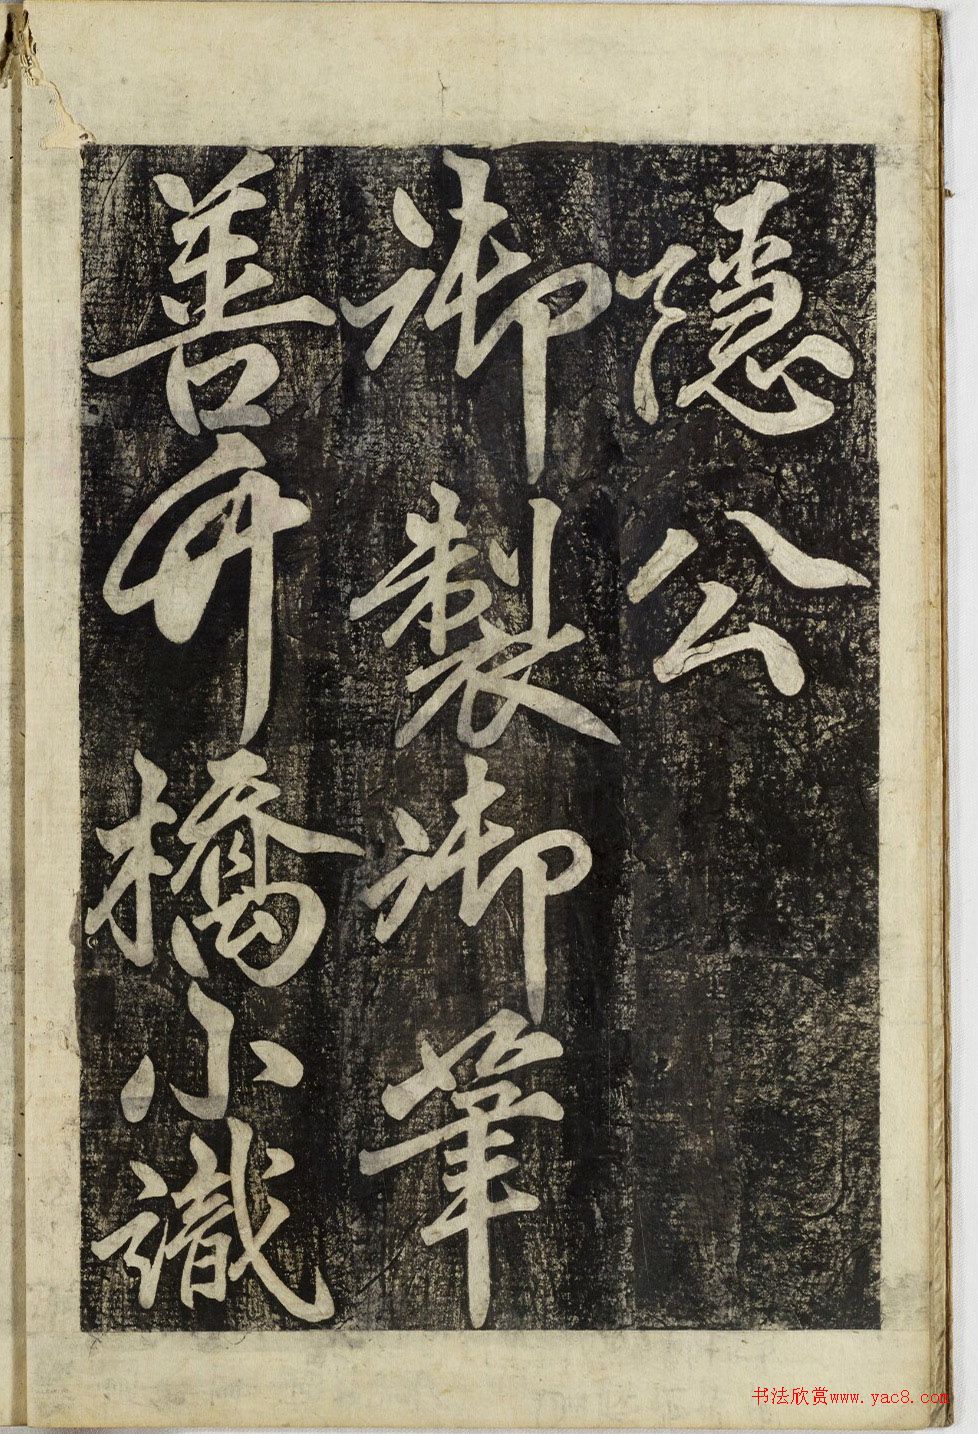 隱公
御製御筆
善升橋小識
书法欣赏www.yac8.com